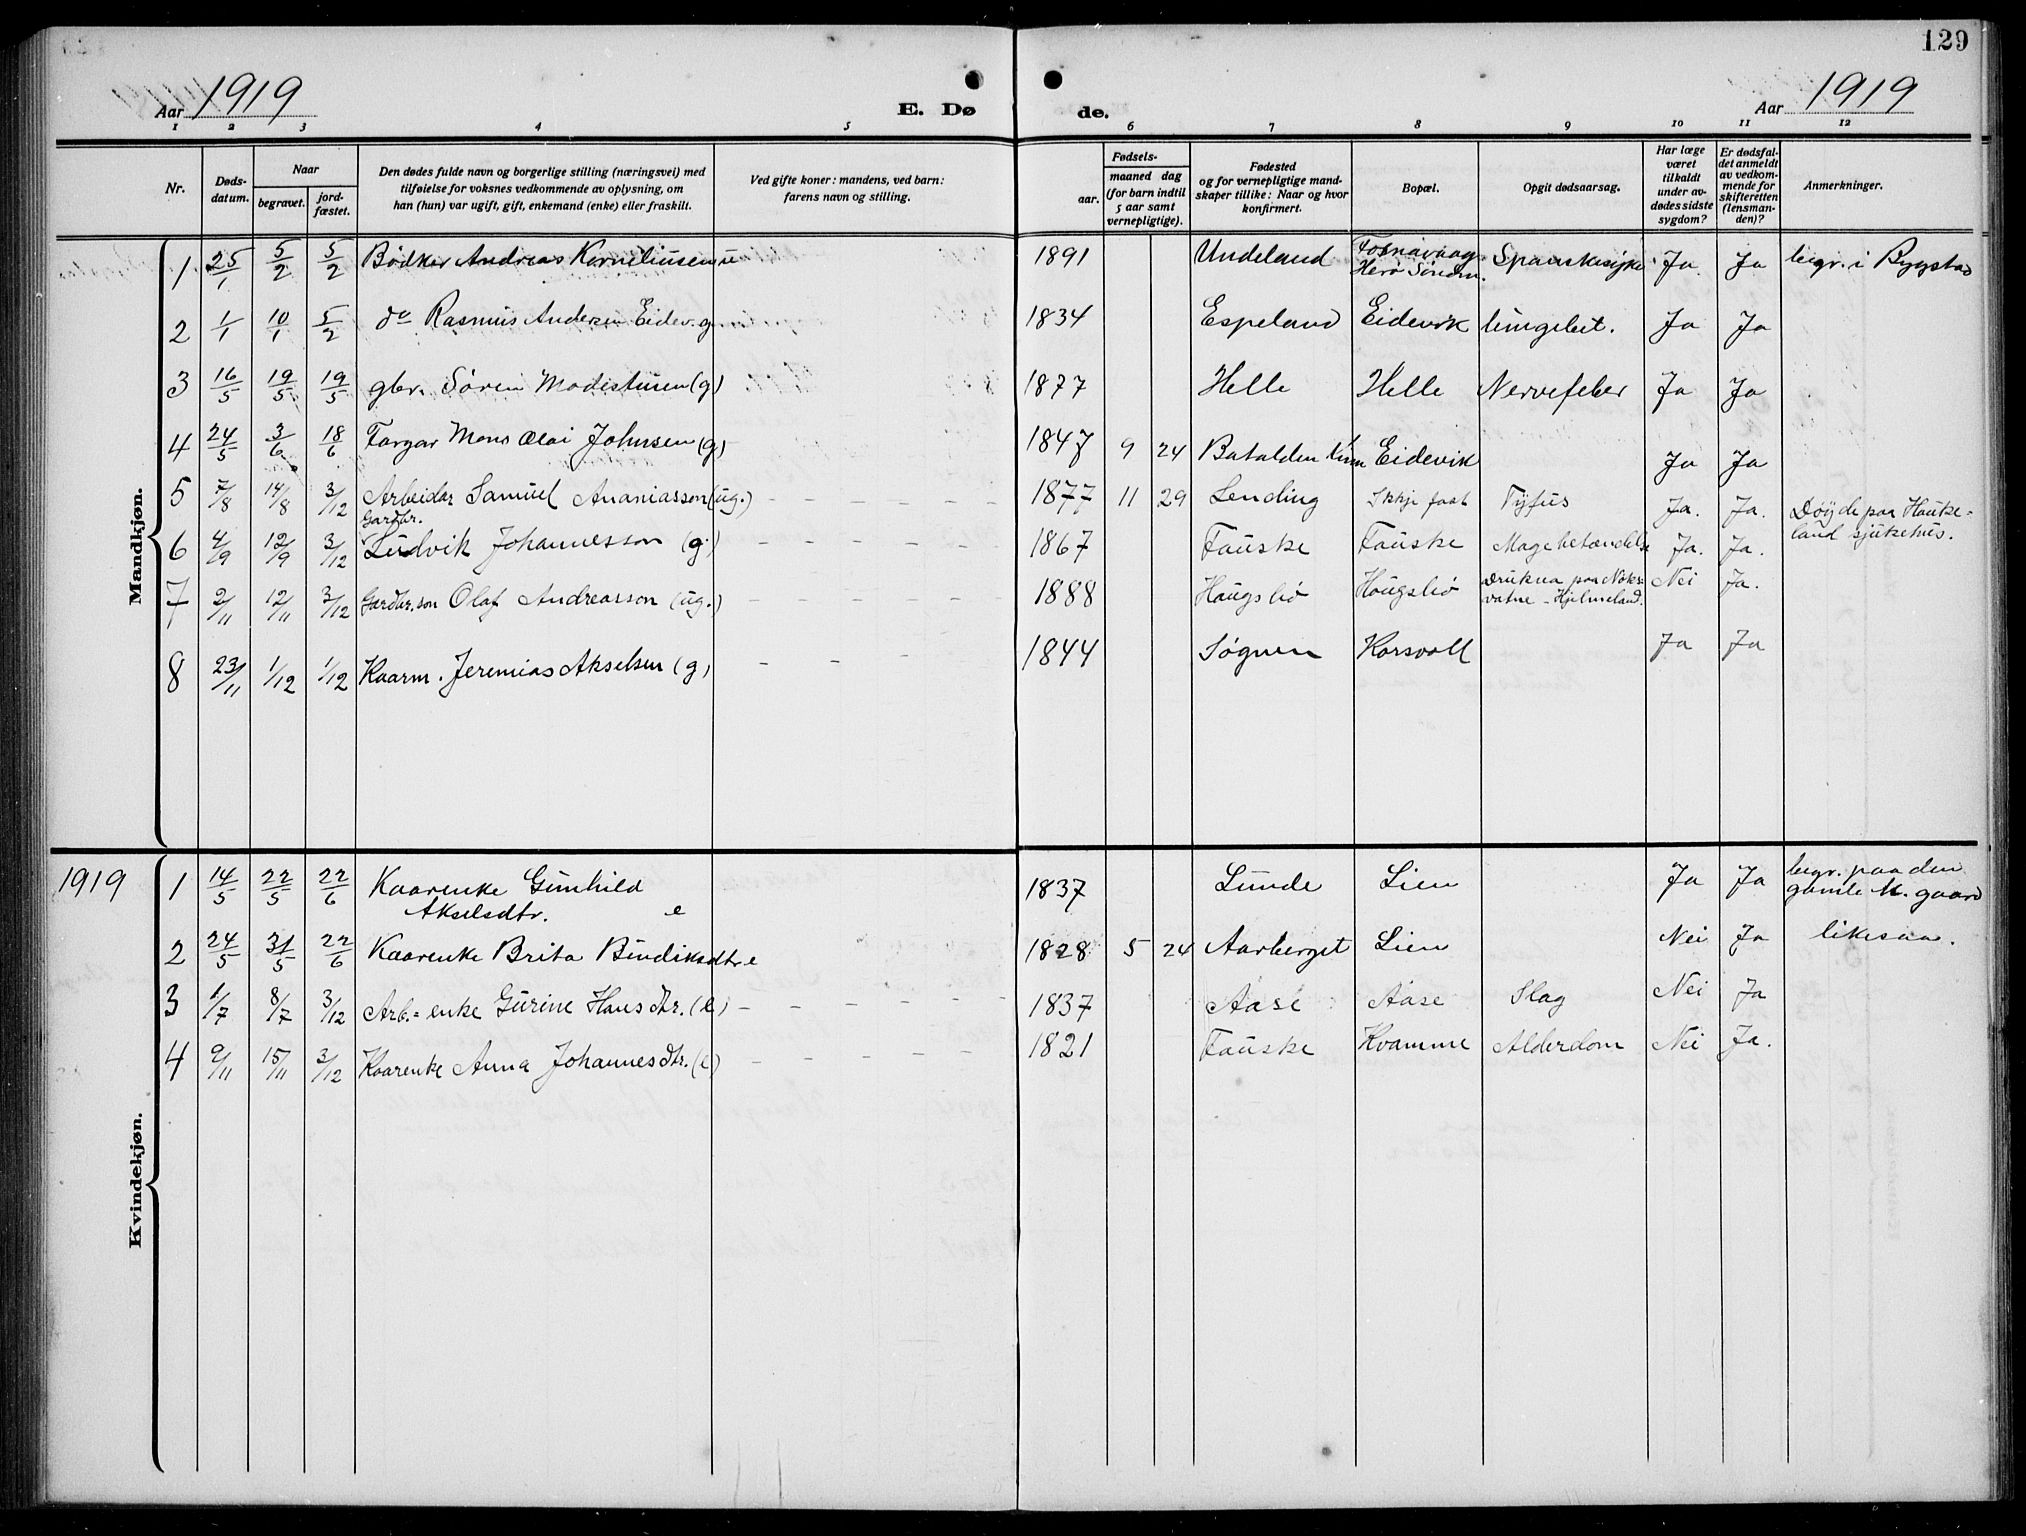 129
Aar 1919 E. Dø de. Aar 1919
1 2 3 4 5 6 7 8 9 10 11 12
Nr. Døds-datum. Naar begravet. jord-fæstet. Den dødes fulde navn og borgerlige stilling (næringsvei) med tilføielse for voksnes vedkommende av oplysning, om han (hun) var ugift, gift, enkemand (enke) eller fraskilt. Ved gifte koner: mandens, ved barn: farens navn og stilling. Fødsels- aar. maaned dag (for barn indtil 5 aar samt vernepligtige). Fødested og for vernepligtige mand-skaper tillike: Naar og hvor konfirmert. Bopæl. Opgit dødsaarsag. Har læge været tilkaldt under av-dødes sidste sygdom? Er dødsfal-det anmeldt av vedkom-mende for skifteretten (lensman-den)? Anmerkninger.
Mandkjøn.
1 25/1 5/2 5/2 Bødker Andreas Korneliussen u 1891 Undeland Fosnavaag Herø Søndm. Spanskesyke Ja. Ja begr. i Bygstad
2 1/1 10/1 5/2 do Rasmus Andersen Eidev. g. 1834 Espeland Eidevik lungebet. Ja Ja
3 16/5 19/5 19/5 gbr. Søren Modestusen (g) 1877 Helle Helle Nervefeber Ja Ja
4 24/5 3/6 18/6 Fargar Mons Olai Johnsen (g) 1847 9 24 Batalden Kinn Eidevik Ja Ja
5 7/8 14/8 3/12 Arbeidar Samuel Ananiasson (ug.) 1877 11 29 Lending Ikkje fast Tyfus Ja. Ja. Døyde paa Hauke-land sjukehus.
6 4/9 12/9 3/12 Gardbr. Ludvik Johannesson (g.) 1867 Fauske Fauske Magebetændelse Ja. Ja.
7 2/11 12/11 3/12 Gardbr.son Olaf Andreasson (ug.) 1888 Haugsbø Haugsbø Drukna paa Nøks-vatne - Hjelmeland. Nei Ja.
8 23/11 1/12 1/12 Kaarm. Jeremias Akselsen (g) 1844 Søgnen Korsvoll Ja Ja
Kvindekjøn.
1919 1 14/5 22/5 22/6 Kaarenke Gunhild Akselsdtr. e 1837 Lunde Lien Ja Ja begr. paa den gamle k. gaard
2 24/5 31/5 22/6 Kaarenke Brita Bendiksdtr e 1828 5 24 Aarberget Lien Nei Ja likesaa.
3 1/7 8/7 3/12 Arb.=enke Gurine Hansdtr. (e) 1837 Aase Aase Slag Nei Ja
4 9/11 15/11 3/12 Kaarenke Anna Johannesdtr. (e) 1821 Fauske Kvamme Alderdom Nei Ja.